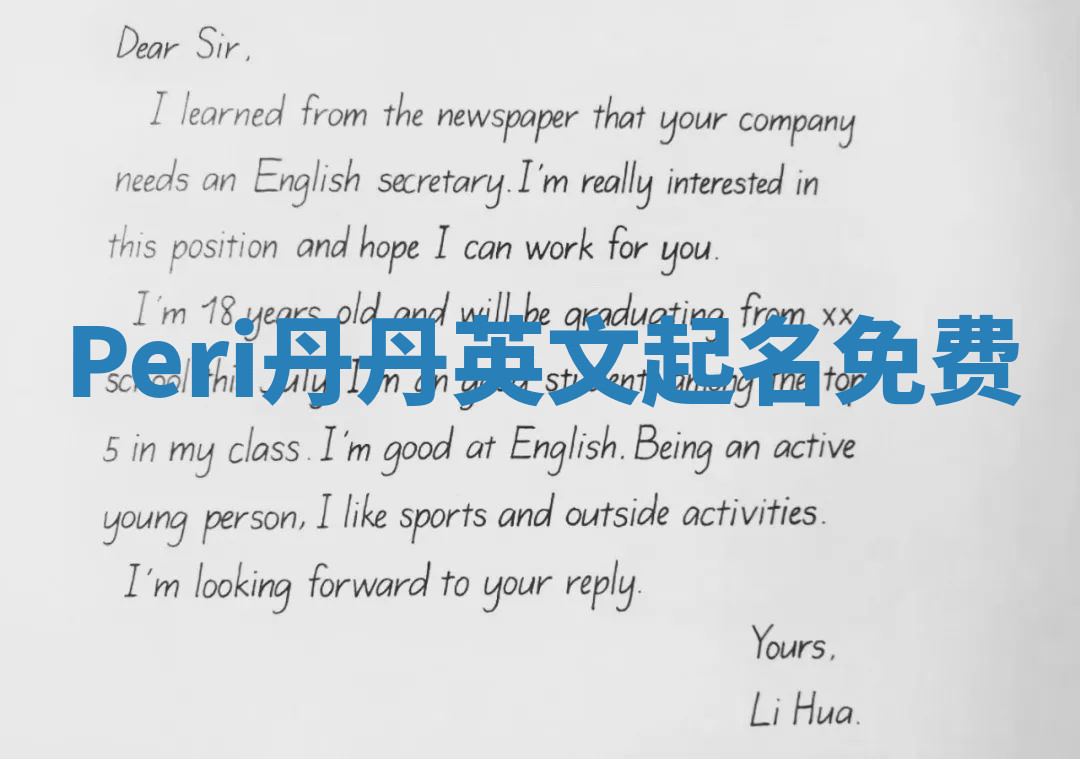 Dear Sir,
I learned from the newspaper that your company
needs an English secretary. I'm really interested in
this position and hope I can work for you.
I'm 18 years old and will be graduating from xx
Peri丹丹英文起名免费
school this July. I'm an good student among the top
5 in my class. I'm good at English. Being an active
young person, I like sports and outside activities.
I'm looking forward to your reply.
Yours,
Li Hua.